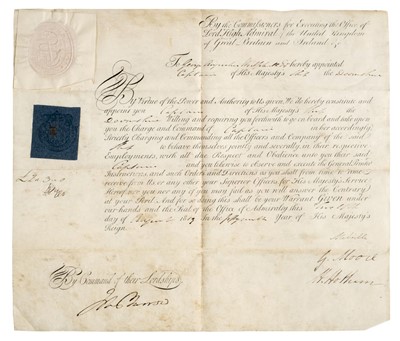 By the Commissioners for Executing the Office of
Lord High Admiral of the United Kingdom
of Great Britain and Ireland &c
To hereby appointed
Captain of His Majesty's Ship the Devonshire
By Virtue of the Power and Authority to Us given We do hereby constitute and
appoint you Captain of His Majesty's Ship the
Devonshire Willing and requiring you forthwith to go on board and take upon
you the Charge and Command of Captain in her accordingly
Strictly Charging and Commanding all the Officers and Company of the said
Ship to behave themselves jointly and severally in their respective
Employments, with all due Respect and Obedience unto you their said
Captain and you likewise to observe and execute the General Printed
Instructions and such Orders and Directions as you shall from time to time
receive from Us or any other your Superior Officers for His Majesty's Service
Hereof nor you nor any of you may fail as you will answer the Contrary
at your Peril And for so doing this shall be your Warrant Given under
our hands and the Seal of the Office of Admiralty this
day of in the Year of His Majesty's
Reign.
G. Moore
By Command of their Lordships